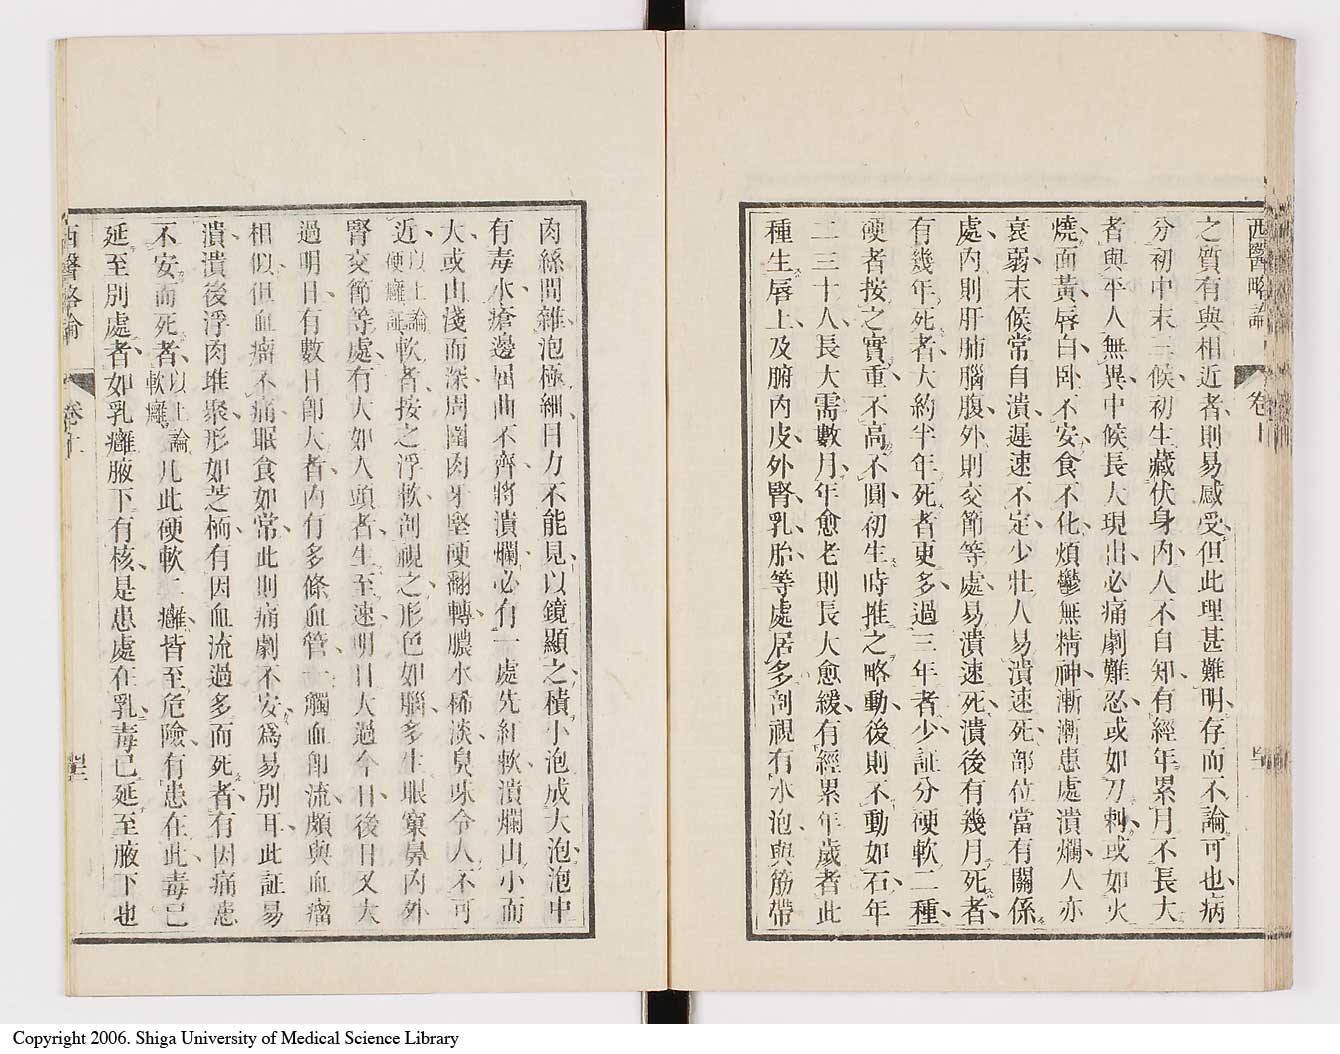 西醫略論
卷中
之質有與相近者則易感受但此理甚難明存而不論可也病
分初中末三候初生藏伏身內人不自知有經年累月不長大
者與平人無異中候長大現出必痛劇難忍或如刀刺或如火
燒面黃唇白臥不安食不化煩鬱無精神漸漸患處潰爛人亦
衰弱末候常自潰遲速不定少壯人易潰速死部位當有關係
處內則肝肺腦腹外則交節等處易潰速死潰後有幾月死者
有幾年死者大約半年死者更多過三年者少証分硬軟二種
硬者按之實重不高不圓初生時推之略動後則不動如石年
二三十人長大需數月年愈老則長大愈緩有經累年歲者此
種生唇上及腑內皮外腎乳胎等處居多剖視有水泡與筋帶
肉絲間雜泡極細目力不能見以鏡顯之積小泡成大泡泡中
有毒水瘡邊屈曲不齊將潰爛必有一處先紅軟潰爛由小而
大或由淺而深周圍肉牙堅硬翻轉膿水稀淡臭味令人不可
近以上論硬癰証軟者按之浮軟剖視之形色如腦多生眼窠鼻內外
腎交節等處有大如人頭者生至速明日大過今日後日又大
過明日有數日即大者內有多條血管一觸血即流頗與血瘤
相似但血瘤不痛眠食如常此則痛劇不安為易別耳此証易
潰潰後浮肉堆聚形如芝栭有因血流過多而死者有因痛患
不安而死者以上論軟癰凡此硬軟二癰皆至危險有患在此毒已
延至別處者如乳癰腋下有核是患處在乳毒已延至腋下也
西醫略論
Copyright 2006. Shiga University of Medical Science Library